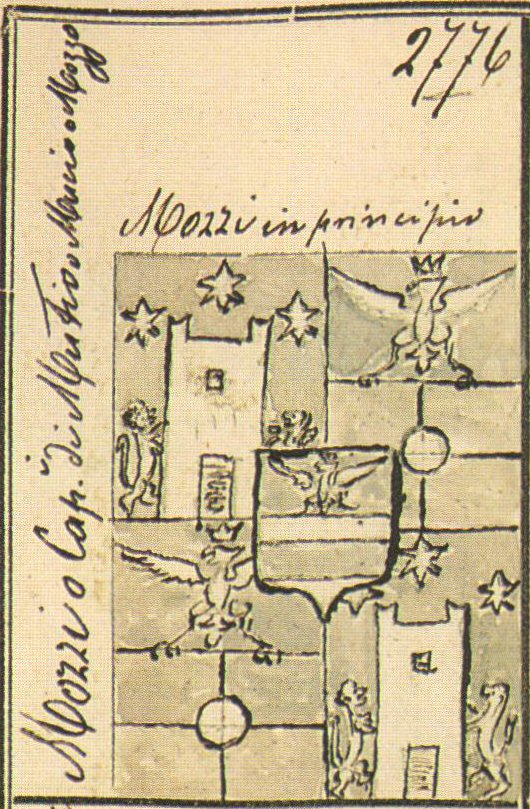 2776
Mozzi in principio
Mozzi o Cap. di Mutio o Mucio o Mozzo